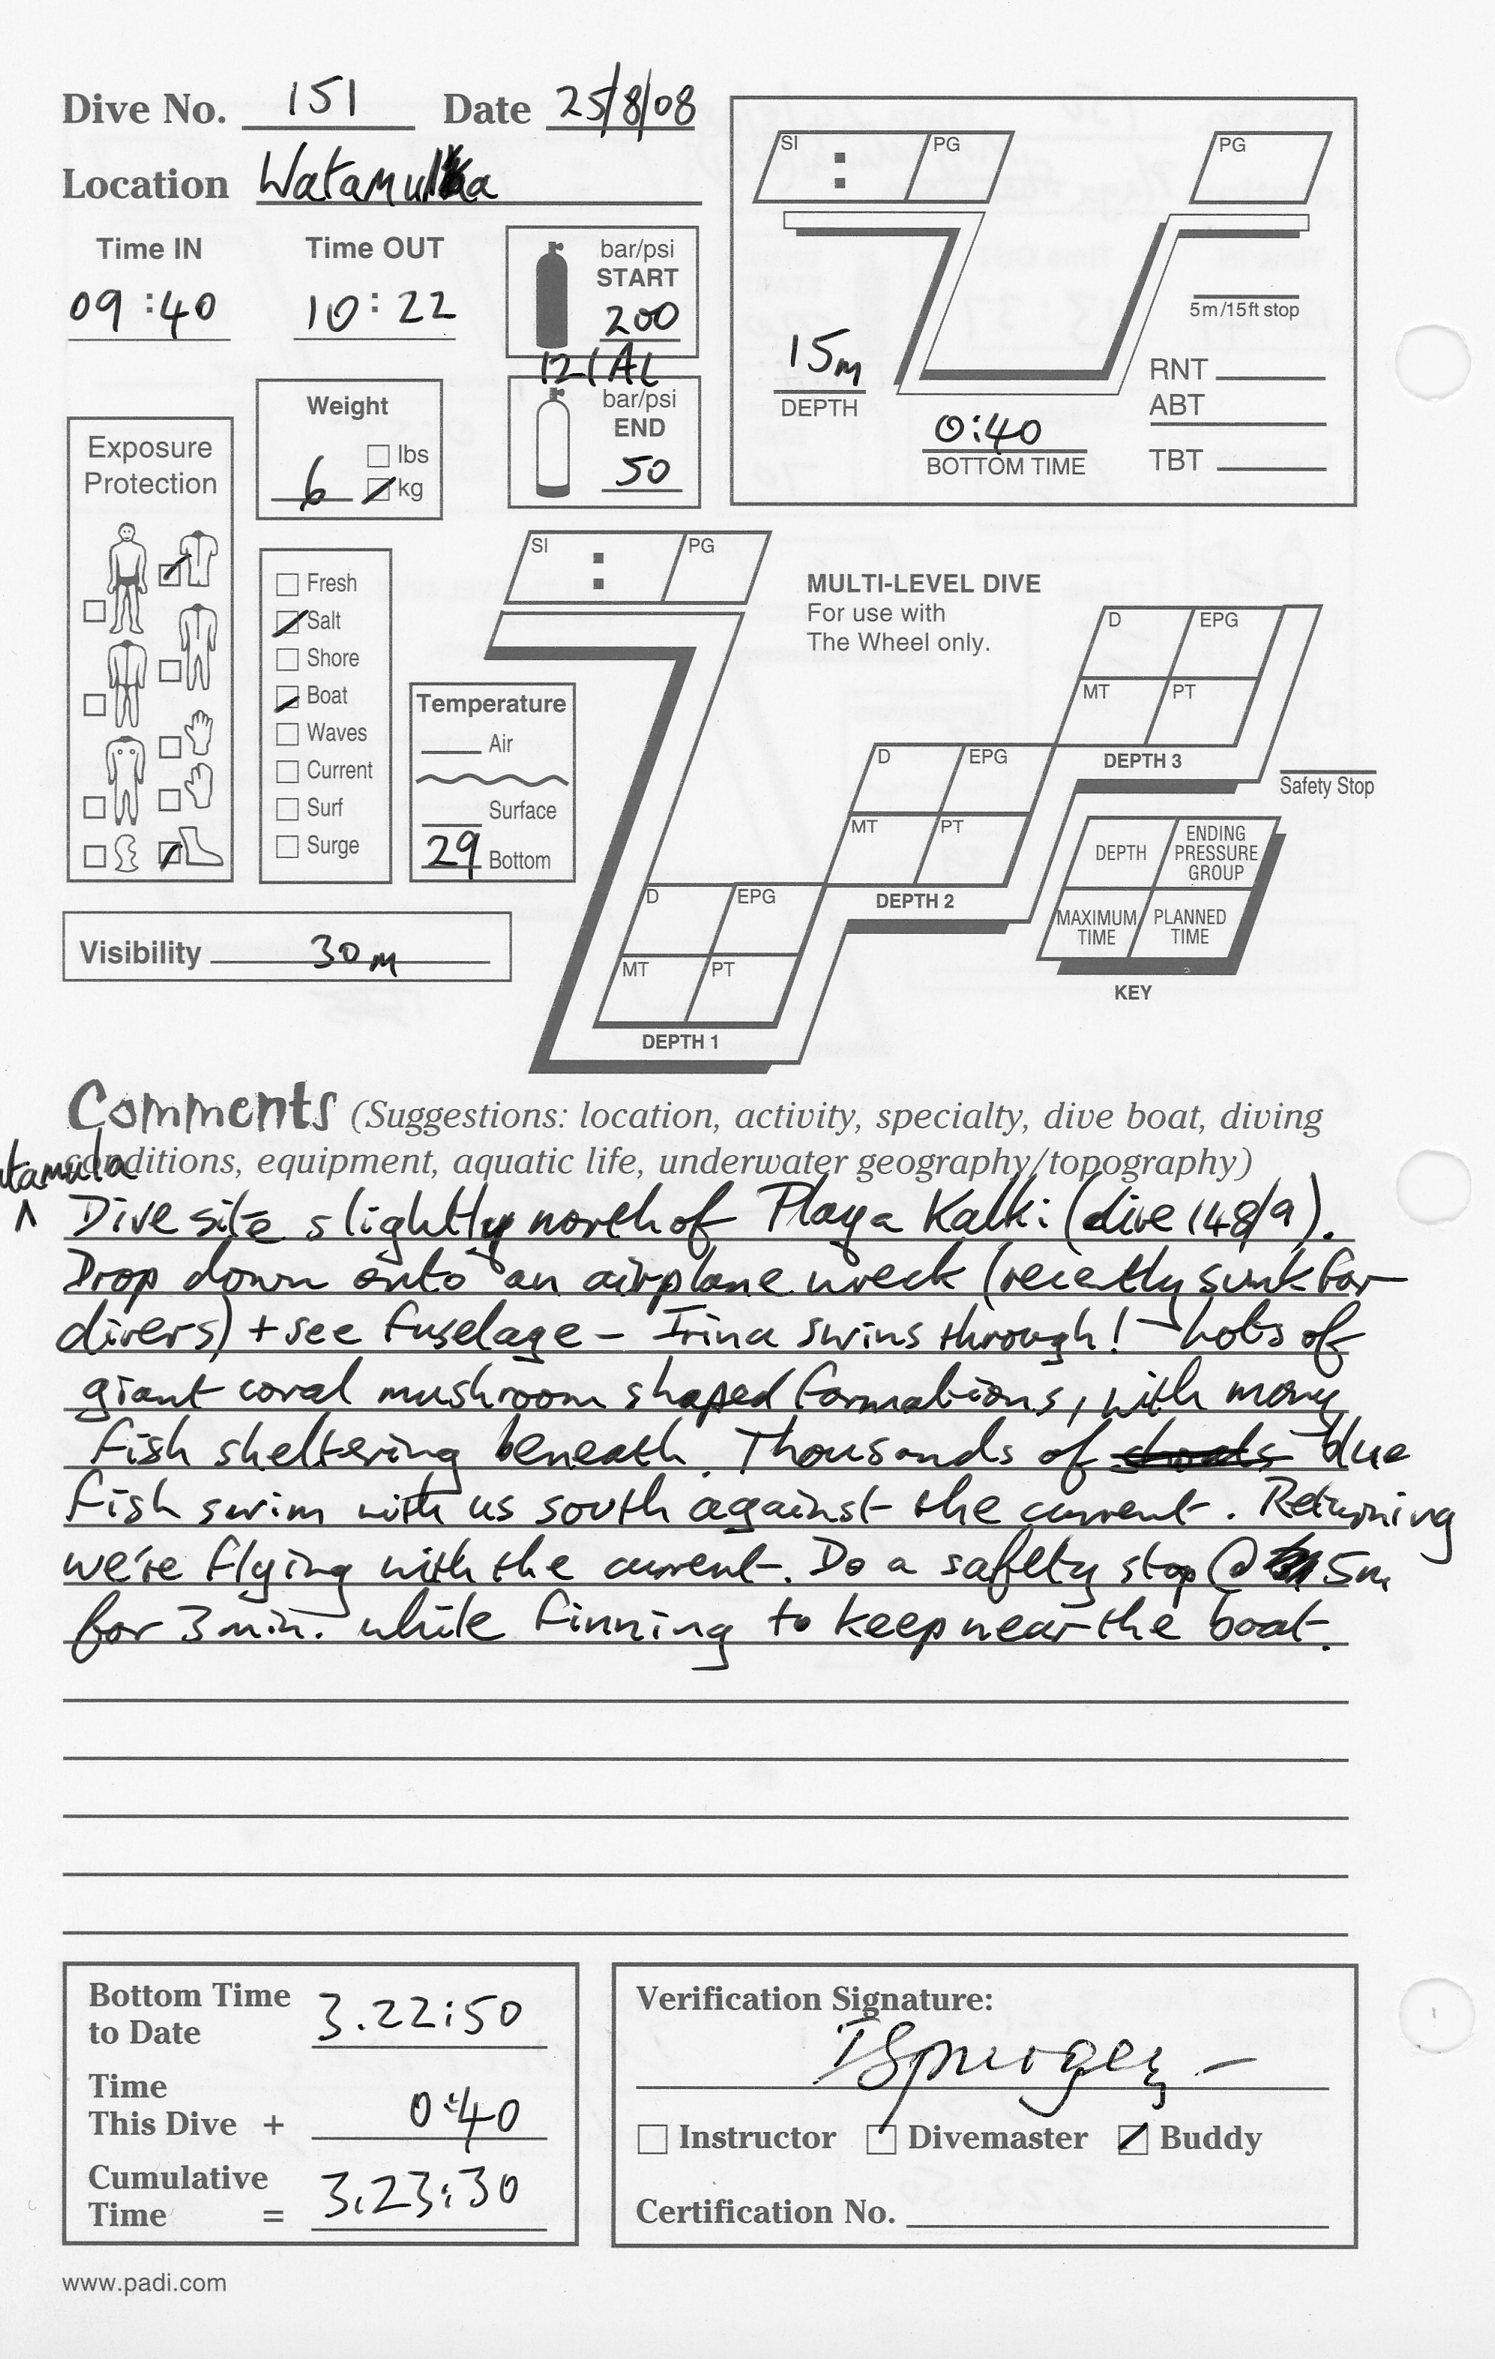 Dive No. 151 Date 25/8/08
Location Watamulka
Time IN Time OUT
09:40 10:22
bar/psi
START
200
12l AL
bar/psi
END
50
Weight
6 lbs
kg
Exposure
Protection
Fresh
Salt
Shore
Boat
Waves
Current
Surf
Surge
Temperature
Air
Surface
29 Bottom
Visibility 30m
SI : PG
PG
5m/15ft stop
15m
DEPTH
0:40
BOTTOM TIME
RNT
ABT
TBT
SI : PG
MULTI-LEVEL DIVE
For use with
The Wheel only.
D EPG
MT PT
DEPTH 3
D EPG
MT PT
DEPTH 2
D EPG
MT PT
DEPTH 1
Safety Stop
DEPTH ENDING PRESSURE GROUP
MAXIMUM TIME PLANNED TIME
KEY
Comments (Suggestions: location, activity, specialty, dive boat, diving
conditions, equipment, aquatic life, underwater geography/topography)
atamula
Dive site slightly north of Playa Kalki (dive 148/9).
Drop down onto an airplane wreck (recently sunk for
divers) + see fuselage – Irina swims through! Lots of
giant coral mushroom shaped formations, with many
fish sheltering beneath. Thousands of shoals blue
fish swim with us south against the current. Returning
we're flying with the current. Do a safety stop @ 5m
for 3 min. while finning to keep near the boat.
Bottom Time
to Date 3.22:50
Time
This Dive + 0:40
Cumulative
Time = 3.23:30
Verification Signature:
Instructor Divemaster Buddy
Certification No.
www.padi.com